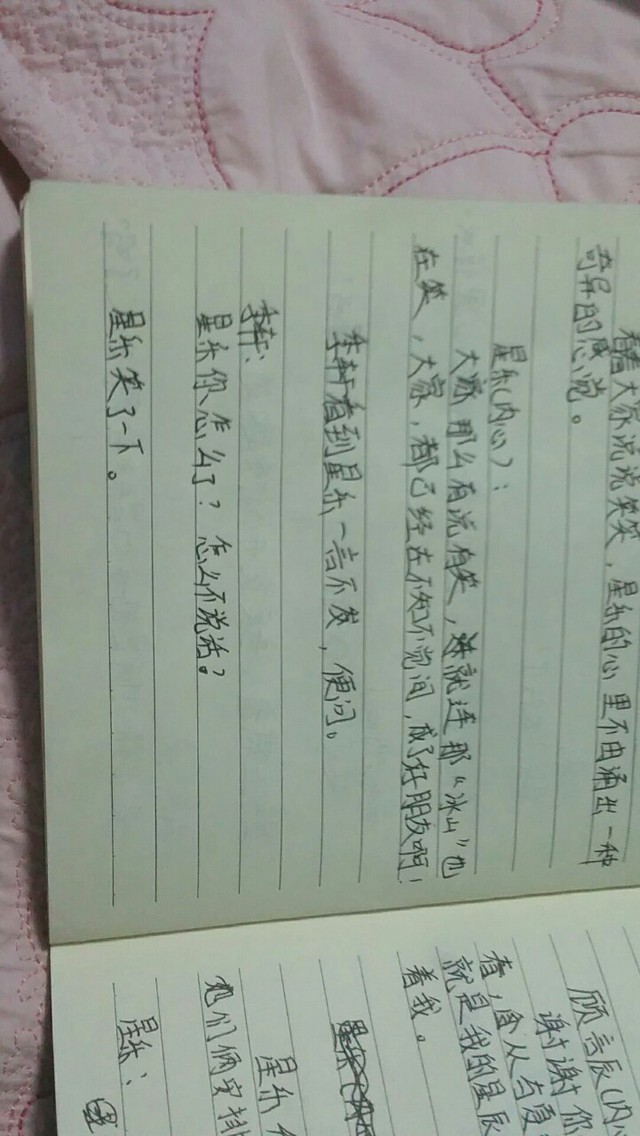 看着大家说说笑笑，星乐的心里不由涌出一种
奇异的感觉。
星乐（内心）：
大家那么有说有笑，就连那“冰山”也
在笑，大家，都已经在不知不觉间，成了好朋友啊！
李轩看到星乐一言不发，便问。
李轩：
星乐你怎么了？怎么不说话？
星乐笑了一下。
顾言辰（内心
谢谢你
看，会从与夏
就是我的星辰
着我。
星乐
他们俩安排
星乐：